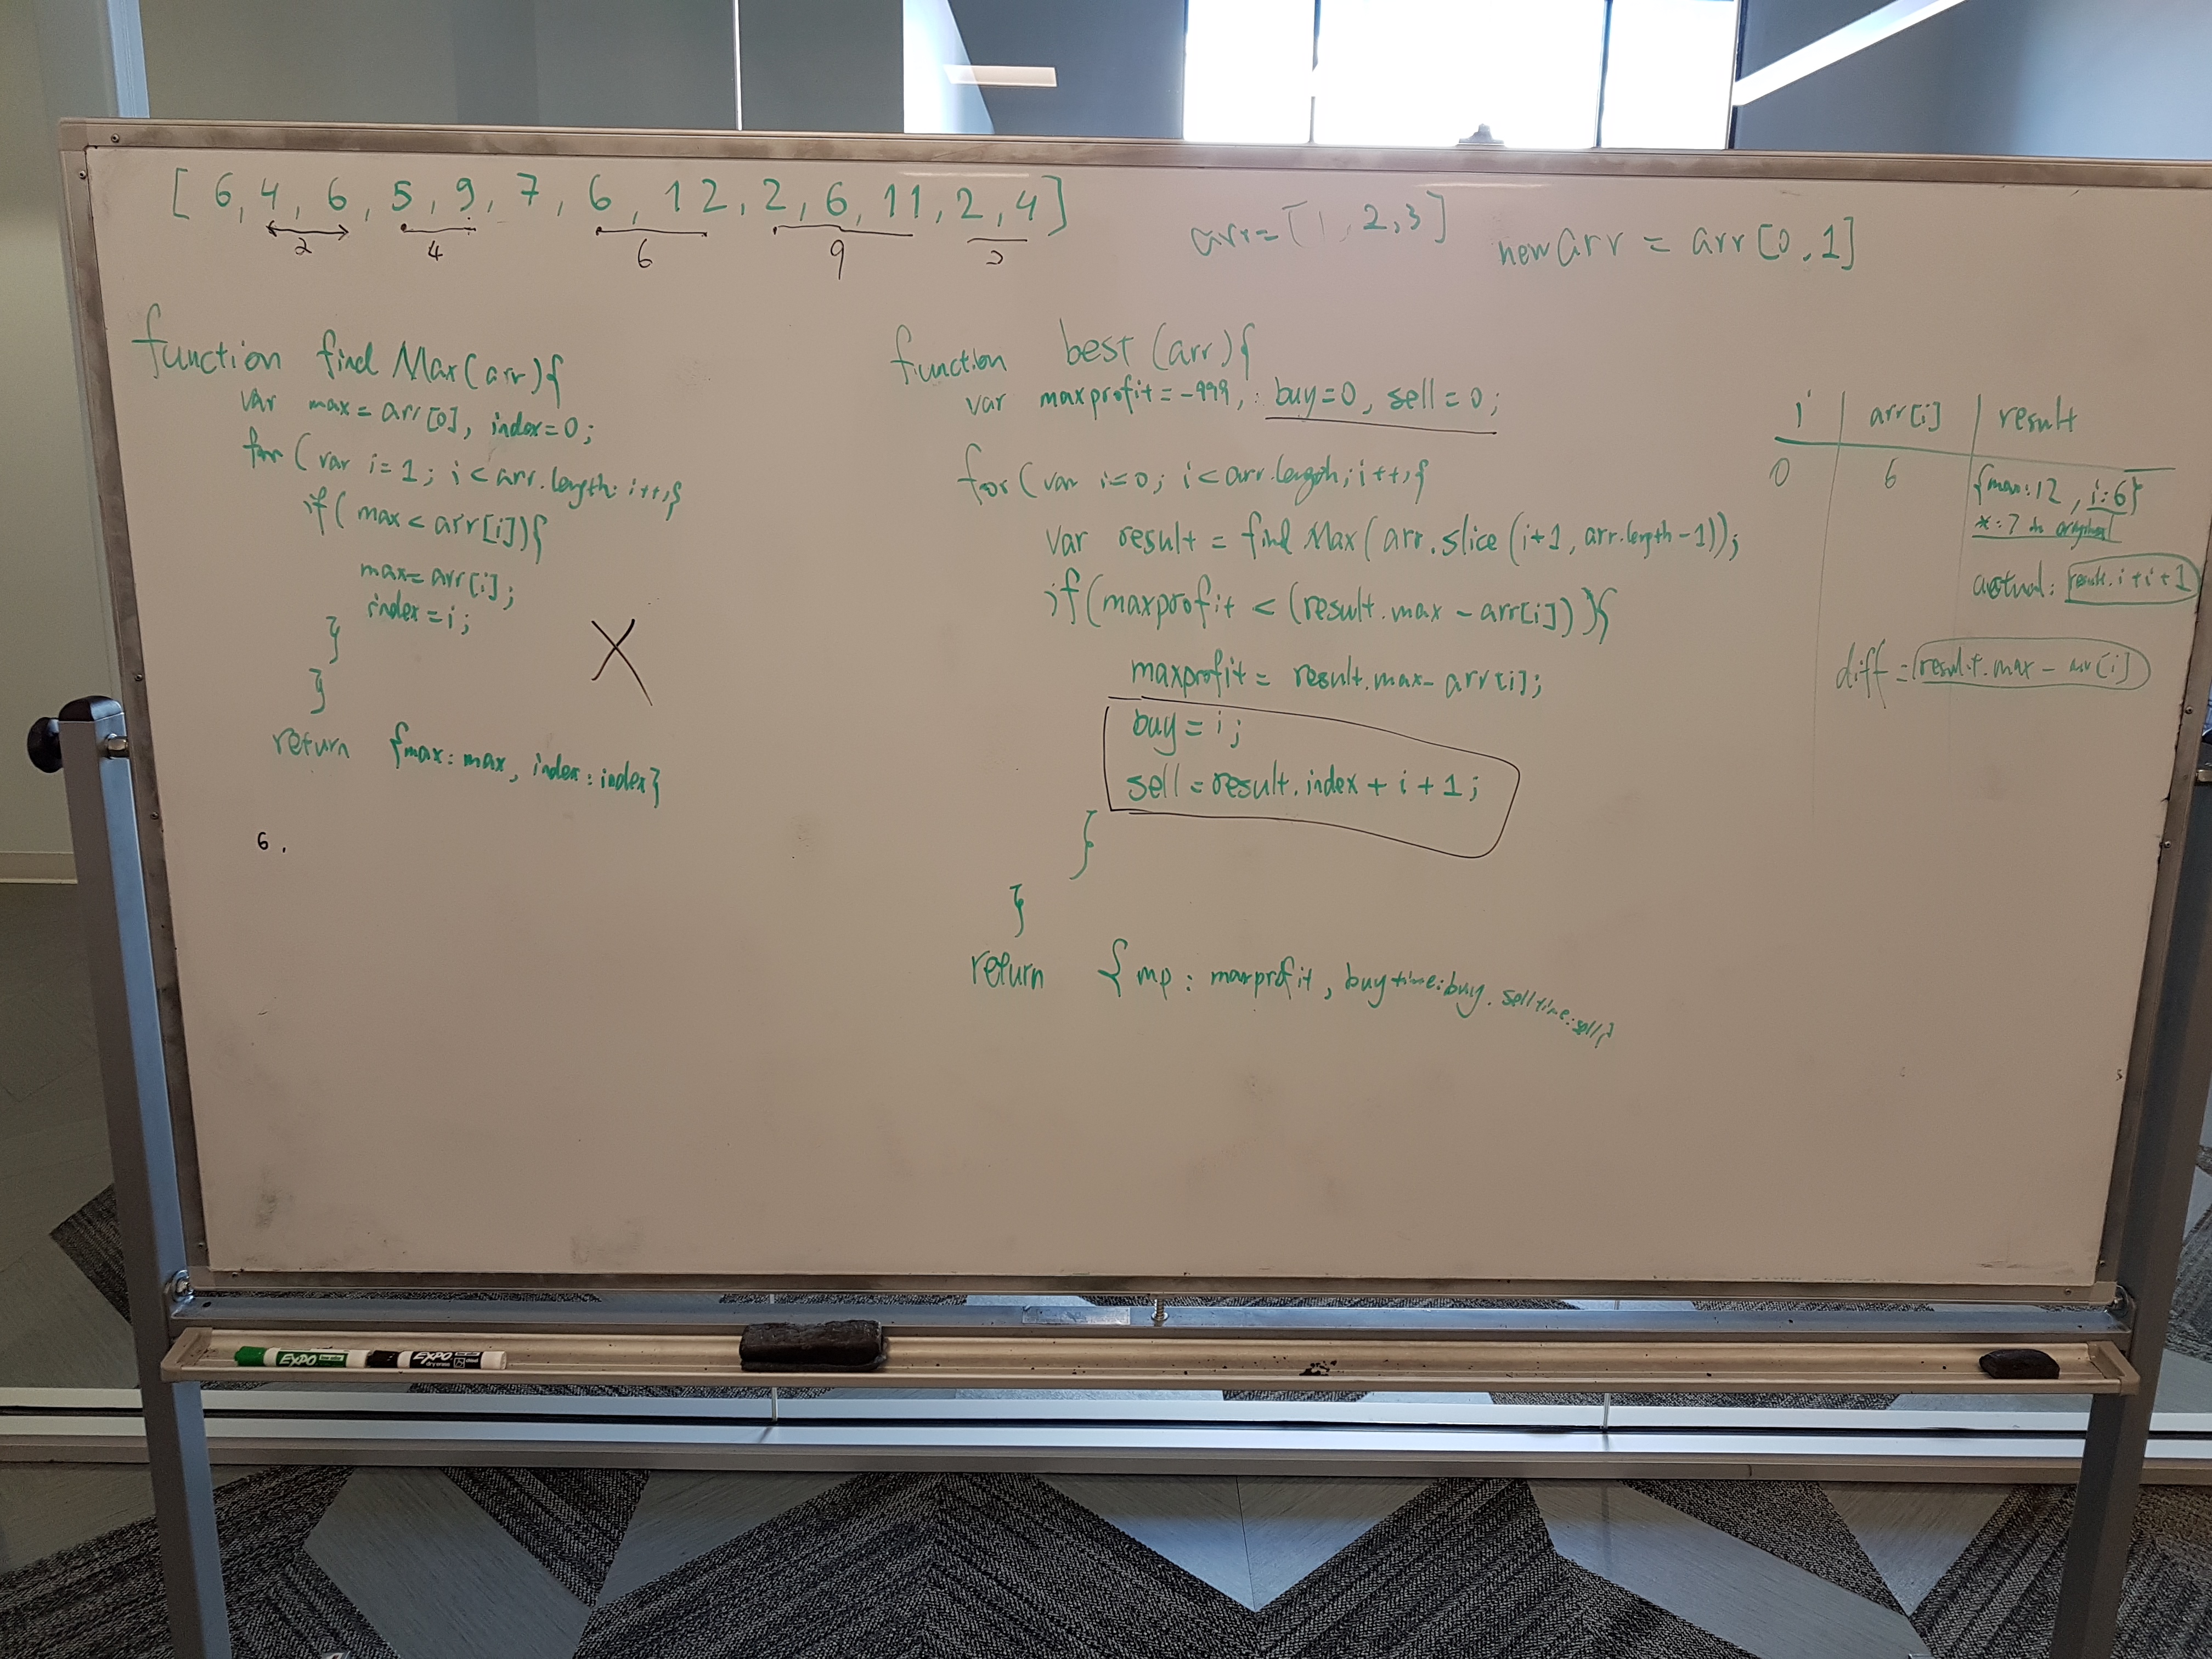 [ 6, 4, 6, 5, 9, 7, 6, 12, 2, 6, 11, 2, 4 ]
2 4 6 9 2
arr = [1, 2, 3] new arr = arr [0, 1]
function find Max (arr) {
var max = arr [0], index = 0;
for ( var i = 1; i < arr. length; i++) {
if ( max < arr [i]) {
max = arr [i];
index = i;
}
}
return {max: max, index: index}
X
6.
function best (arr) {
var maxprofit = -999, buy=0, sell = 0;
for ( var i=0; i < arr. length; i++) {
var result = find Max ( arr. slice (i+1, arr. length -1));
if (maxprofit < (result. max - arr [i])) {
maxprofit = result. max - arr [i];
buy = i;
sell = result. index + i + 1;
}
}
return { mp: maxprofit, buytime: buy, selltime: sell}
i arr [i] result
0 6 {max: 12, i: 6}
*: 7 in original
actual: result. i + i + 1
diff = result. max - arr [i]
EXPO
EXPO